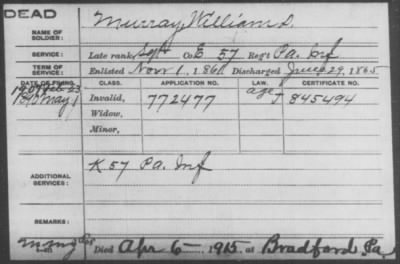 DEAD
NAME OF SOLDIER: Murray, William D.
SERVICE: Late rank Sgt Co. E 57 Reg't Pa. Inf
TERM OF SERVICE: Enlisted Nov 1, 1861 Discharged June 29, 1865
DATE OF FILING. CLASS. APPLICATION NO. LAW. CERTIFICATE NO.
1907 Feb 23 age
May 1 Invalid, 772477 J 845494
Widow,
Minor,
ADDITIONAL SERVICES: K 57 Pa. Inf
REMARKS:
Died Apr 6 1915 at Bradford Pa